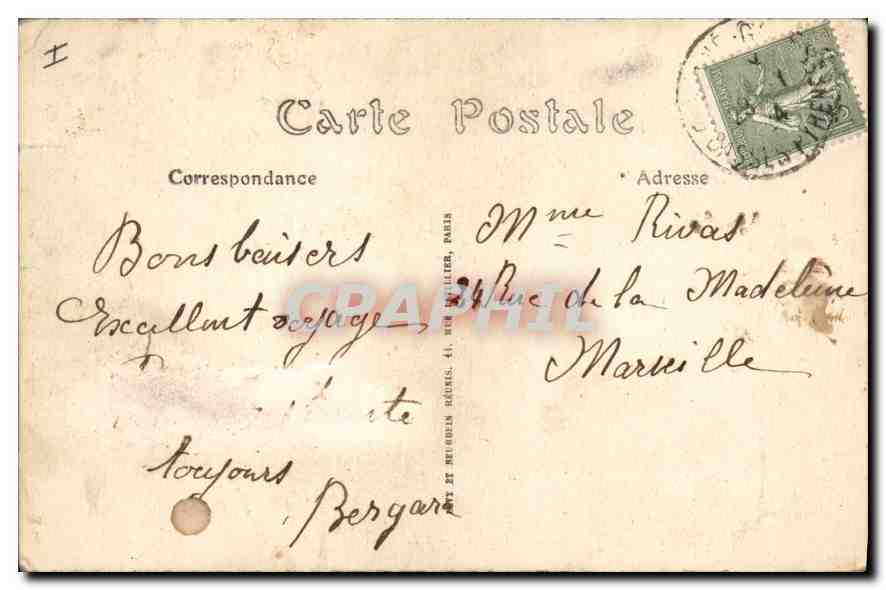 I
Carte Postale
Correspondance
Adresse
Bons baisers
Excellent voyage
toujours
Bergara
Mme Rivas
24 Rue de la Madeleine
Marseille
ET NEURDEIN RÉUNIS, 44, RUE LETELLIER, PARIS
CPAPHIL